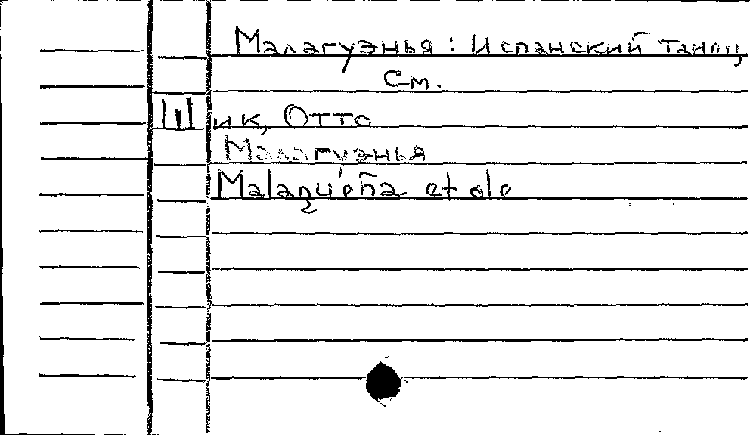 Малагуэнья: Испанский танец
См.
Шик, Отто
Малагуэнья
Malagueña et ole